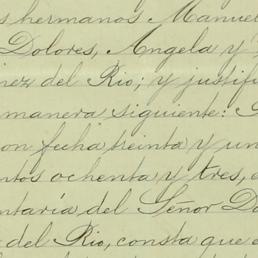 s hermanos Manuel
Dolores, Angela y
nez del Rio; y justifi
manera siguiente:
on fecha treinta y un
ntos ochenta y tres,
ntaría del Señor Do
del Rio, consta que